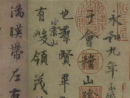 永和九年
于會稽山
也羣賢畢
有崇山峻領茂
湍暎帶左右